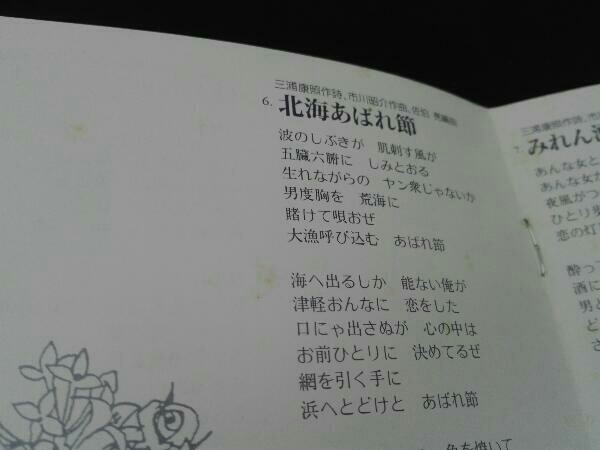 三浦康照作詩、市川昭介作曲、佐伯 亮編曲
6. 北海あばれ節
波のしぶきが 肌刺す風が
五臓六腑に しみとおる
生れながらの ヤン衆じゃないか
男度胸を 荒海に
賭けて唄おぜ
大漁呼び込む あばれ節
海へ出るしか 能ない俺が
津軽おんなに 恋をした
口にゃ出さぬが 心の中は
お前ひとりに 決めてるぜ
網を引く手に
浜へとどけと あばれ節
三浦康照作詩、市
7. みれん
あんな女と
あんな女
夜風がつ
ひとり歩
恋の灯
酔っ
酒に
男と
ど
さ